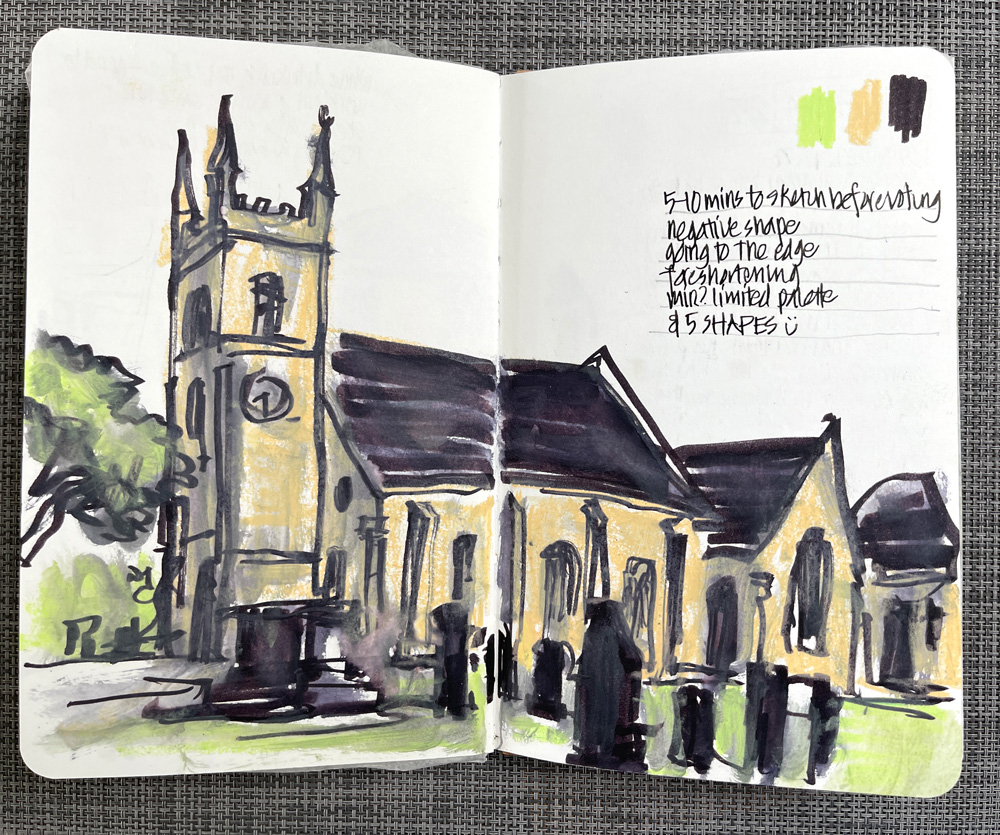 5-10 mins to sketch before voting
negative shape
going to the edge
foreshortening
min? limited palette
& 5 SHAPES